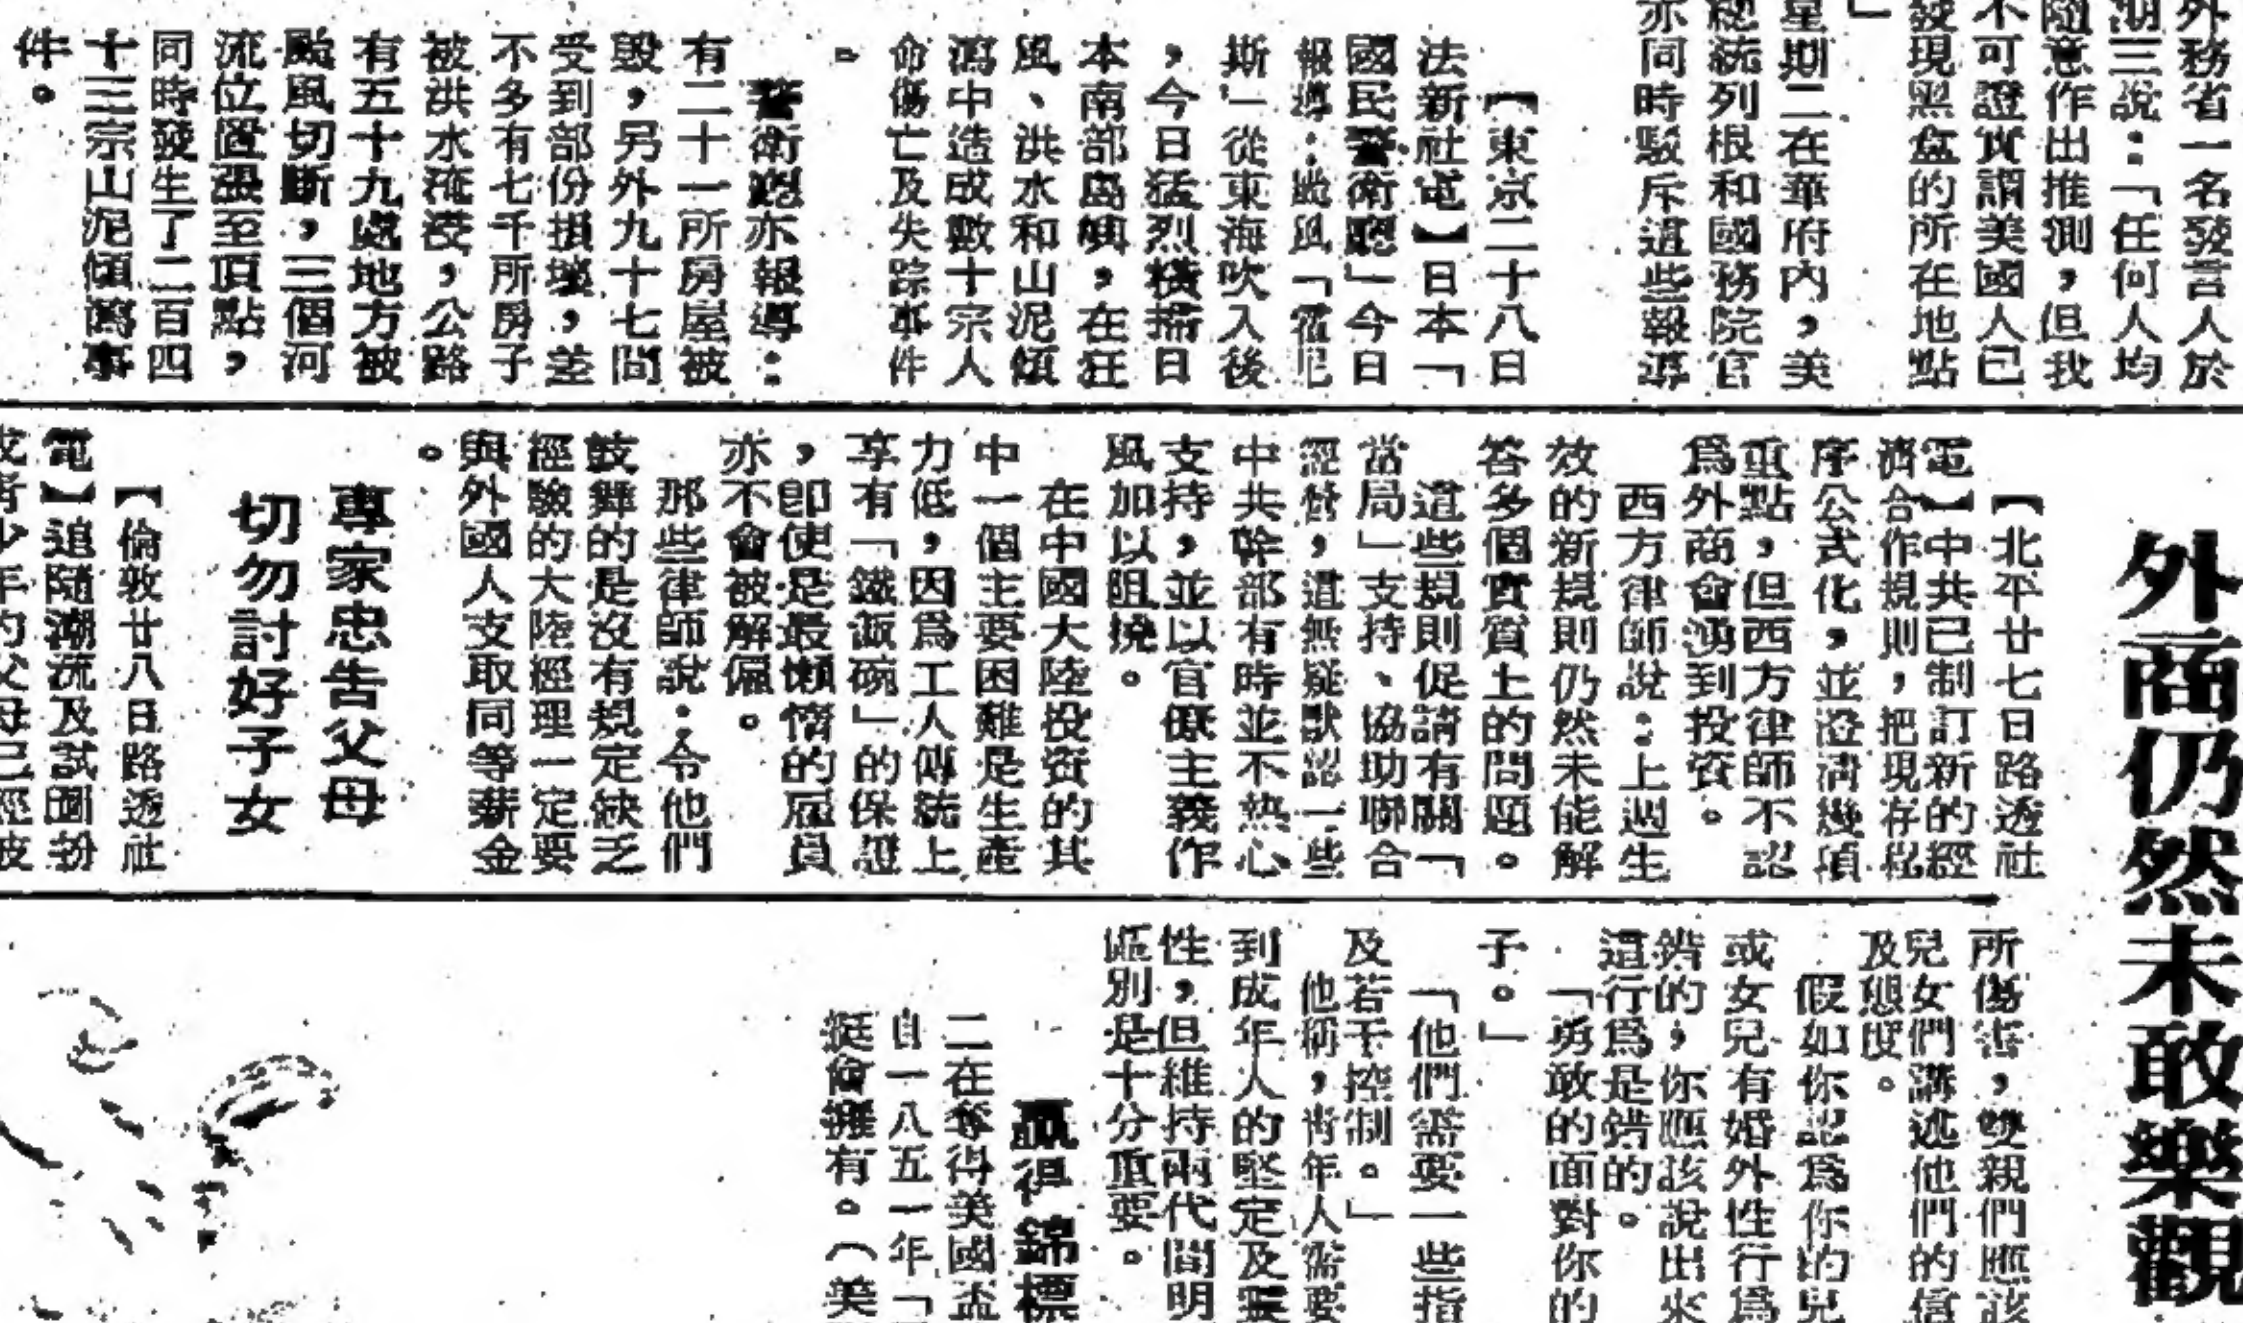 外務省一名發言人於
期三說：「任何人均
隨意作出推測，但我
不可證實謂美國人已
發現黑盒的所在地點
」
星期二在華府內，美
總統列根和國務院官
亦同時駁斥這些報導
【東京二十八日
法新社電】日本「
國民警衛廳」今日
報導：颱風「霍尼
斯」從東海吹入後
，今日猛烈橫掃日
本南部島嶼，在狂
風、洪水和山泥傾
瀉中造成數十宗人
命傷亡及失踪事件
。
警衛廳亦報導：
有二十一所房屋被
毀，另外九十七間
受到部份損壞，差
不多有七千所房子
被洪水淹浸，公路
有五十九處地方被
颱風切斷，三個河
流位置漲至頂點，
同時發生了二百四
十三宗山泥傾瀉事
件。
外商仍然未敢樂觀
【北平廿七日路透社
電】中共已制訂新的經
濟合作規則，把現存程
序公式化，並澄清幾項
重點，但西方律師不認
為外商會湧到投資。
西方律師說：上週生
效的新規則仍然未能解
答多個實質上的問題。
這些規則促請有關「
當局」支持、協助聯合
經營，這無疑默認一些
中共幹部有時並不熱心
支持，並以官僚主義作
風加以阻撓。
在中國大陸投資的其
中一個主要困難是生產
力低，因為工人傳統上
享有「鐵飯碗」的保證
，即使是最懶惰的雇員
亦不會被解僱。
那些律師說：令他們
鼓舞的是沒有規定缺乏
經驗的大陸經理一定要
與外國人支取同等薪金
。
專家忠告父母
切勿討好子女
【倫敦廿八日路透社
電】追隨潮流及試圖扮
或者少年的父母已經被
所傷害，雙親們應該
兒女們講述他們的信
及態度。
假如你認為你的兒
或女兒有婚外性行為
錯的，你應該說出來
這行為是錯的。
「勇敢的面對你的
子。」
「他們需要一些指
及若干控制。」
他稱，青年人需要
到成年人的堅定及
性，但維持兩代間明
區別是十分重要。
贏得錦標
二在奪得美國盃
自一八五一年「
挺會擁有。（美